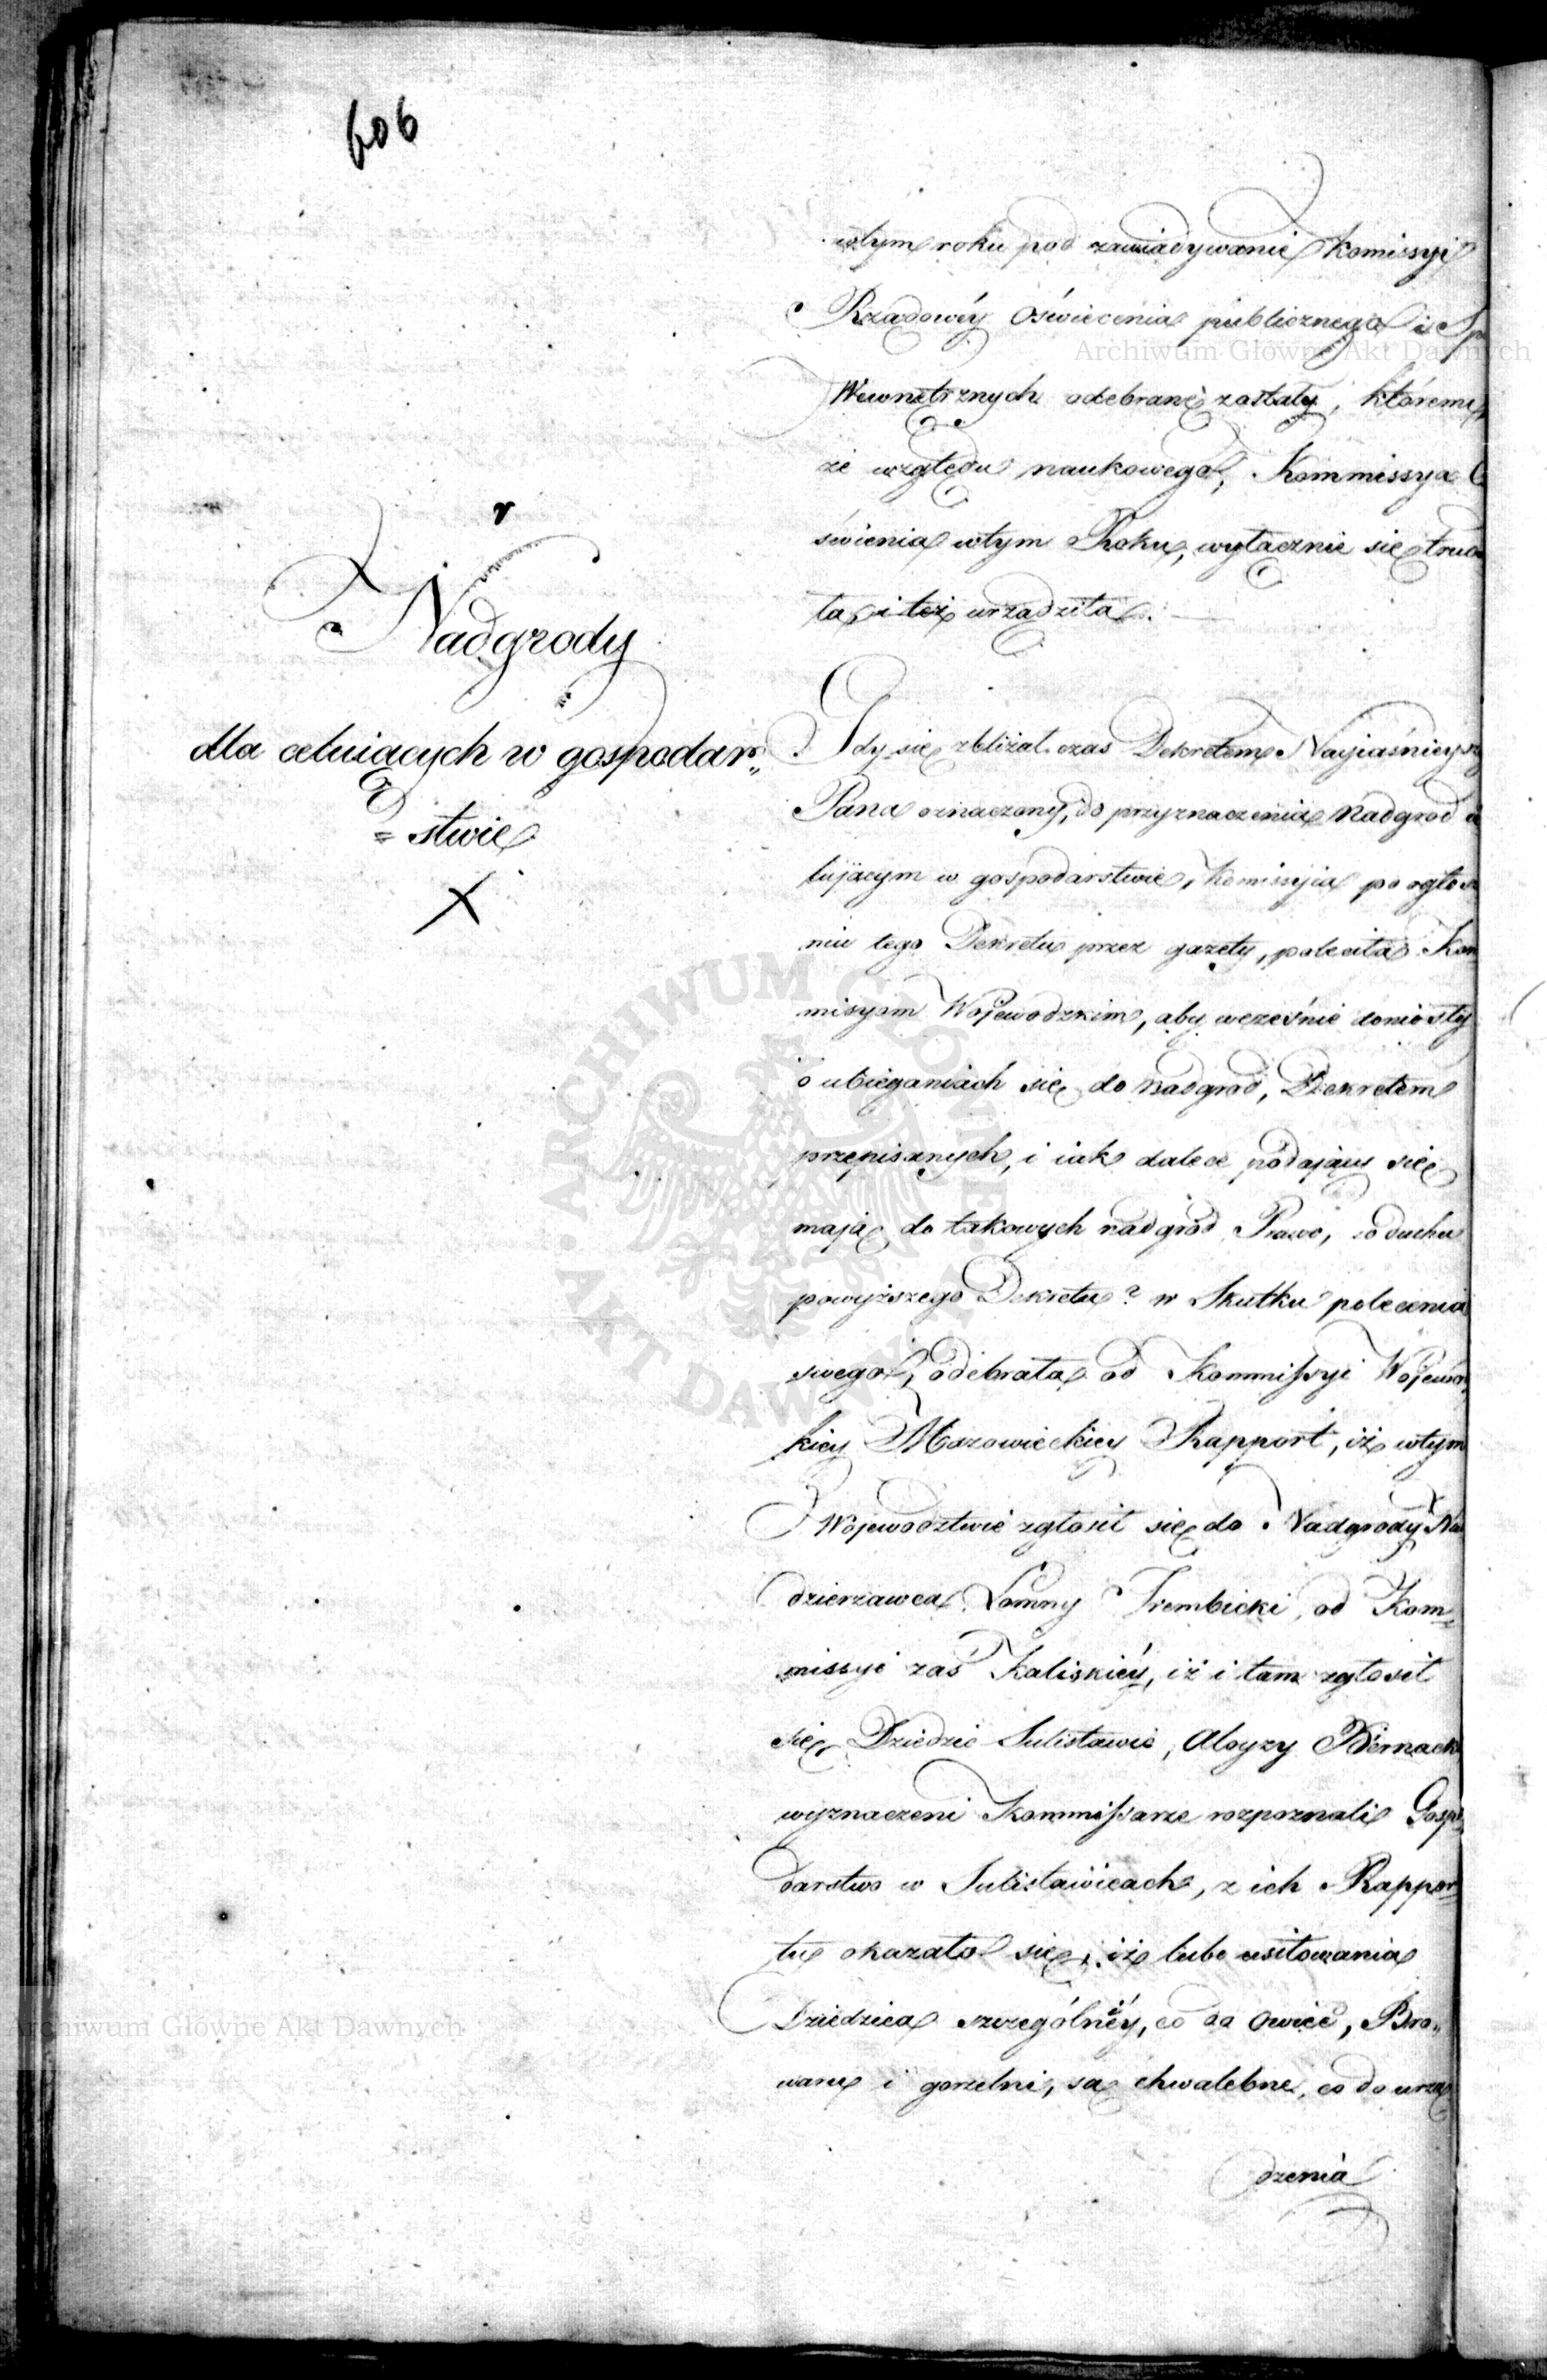 606
wtym roku pod zawiadywanie Komissyi
Rządowéy Oświecenia publicznego i Sp
Wewnętrznych odebrane zostały, któremi
ze względu naukowego, Kommissya O
świenia wtym Roku, wyłącznie się trud
ła, i też urządziła.
Nadgrody
dla celuiących w gospodar„
= stwie
Gdy się zbliżał czas Dekretem Nayiaśnieysz
Pana oznaczony, do przyznaczenia Nadgrod ce
luiącym w gospodarstwie, Komissyia po ogłosz
niu tego Dekretu przez gazety, poleciła Kom
misyom Wojewodzkim, aby wcześnie doniosły
o ubieganiach się do Nadgrod, Dekretem
przepisanych, i iak dalece podaiący się
maią do takowych nadgrod Prawo, co duchu
powyższego Dekretu? w Skutku polecenia
swego, odebrała od Kommissyi Wojewó
kiey Mazowieckiey Rapport, iż wtym
Województwie zgłosił się do Nadgrody Na
dzierzawca Łomny Trembicki, od Kom=
missyi zaś Kaliskiéy, iż i tam zgłosił
się Dziedzic Sulisławic, Aloyzy Biernack
wyznaczeni Kommissarze rozpoznali Gospo
darstwo w Sulisławicach, z ich Rappor=
tu okazało się, iż lubo usiłowania
Dziedzica szczególniéy, co do owiec, Bro„
waru i gorzelni, są chwalebne, co do urzą
dzenia
Archiwum Główne Akt Dawnych
ARCHIWUM GŁÓWNE AKT DAWNYCH
Archiwum Główne Akt Dawnych